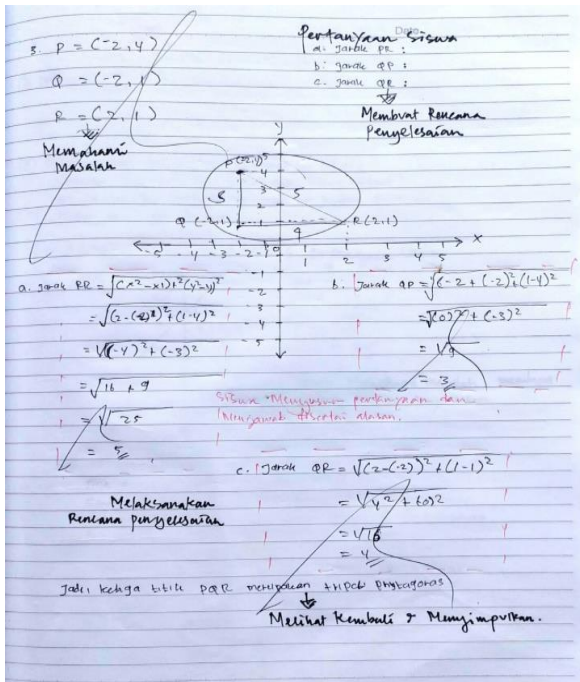 Date
3. P = (-2,4)
Q = (-2,1)
R = (2,1)
Memahami
Masalah
Pertanyaan Siswa
a. Jarak PR :
b. Jarak QP :
c. Jarak QR :
Membuat Rencana
Penyelesaian
y
P(-2,4)
5
4
3
2
1
3
5
4
Q(-2,1)
R(2,1)
-5 -4 -3 -2 -1 0 1 2 3 4 5 x
-1
-2
-3
-4
-5
a. Jarak PR = √(x2-x1)+2(y2-y1)2
= √(2-(-2))2+(1-4)2
= √(-4)2+(-3)2
= √16+9
= √25
= 5
b. Jarak QP = √(-2+(-2)2+(1-4)2
= √(0)2+(-3)2
= √9
= 3
Siswa Menyusun pertanyaan dan
Menjawab disertai alasan.
c. Jarak QR = √(2-(-2))2+(1-1)2
= √42+(0)2
= √16
= 4
Melaksanakan
Rencana penyelesaian
Jadi ketiga titik PQR merupakan tripel phytagoras
Melihat Kembali & Menyimpulkan.